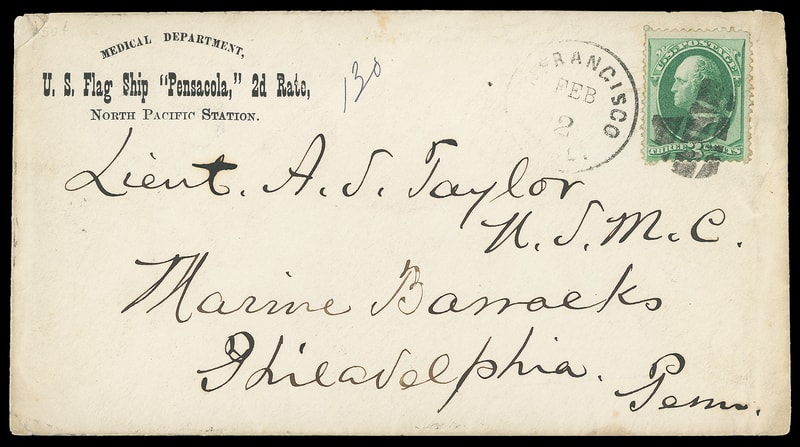 MEDICAL DEPARTMENT,
U. S. Flag Ship "Pensacola," 2d Rate,
NORTH PACIFIC STATION.
130
FRANCISCO
FEB
2
U.S. POSTAGE
THREE 3 CENTS
Lieut. A. S. Taylor
U. S. M. C.
Marine Barracks
Philadelphia.
Penn.